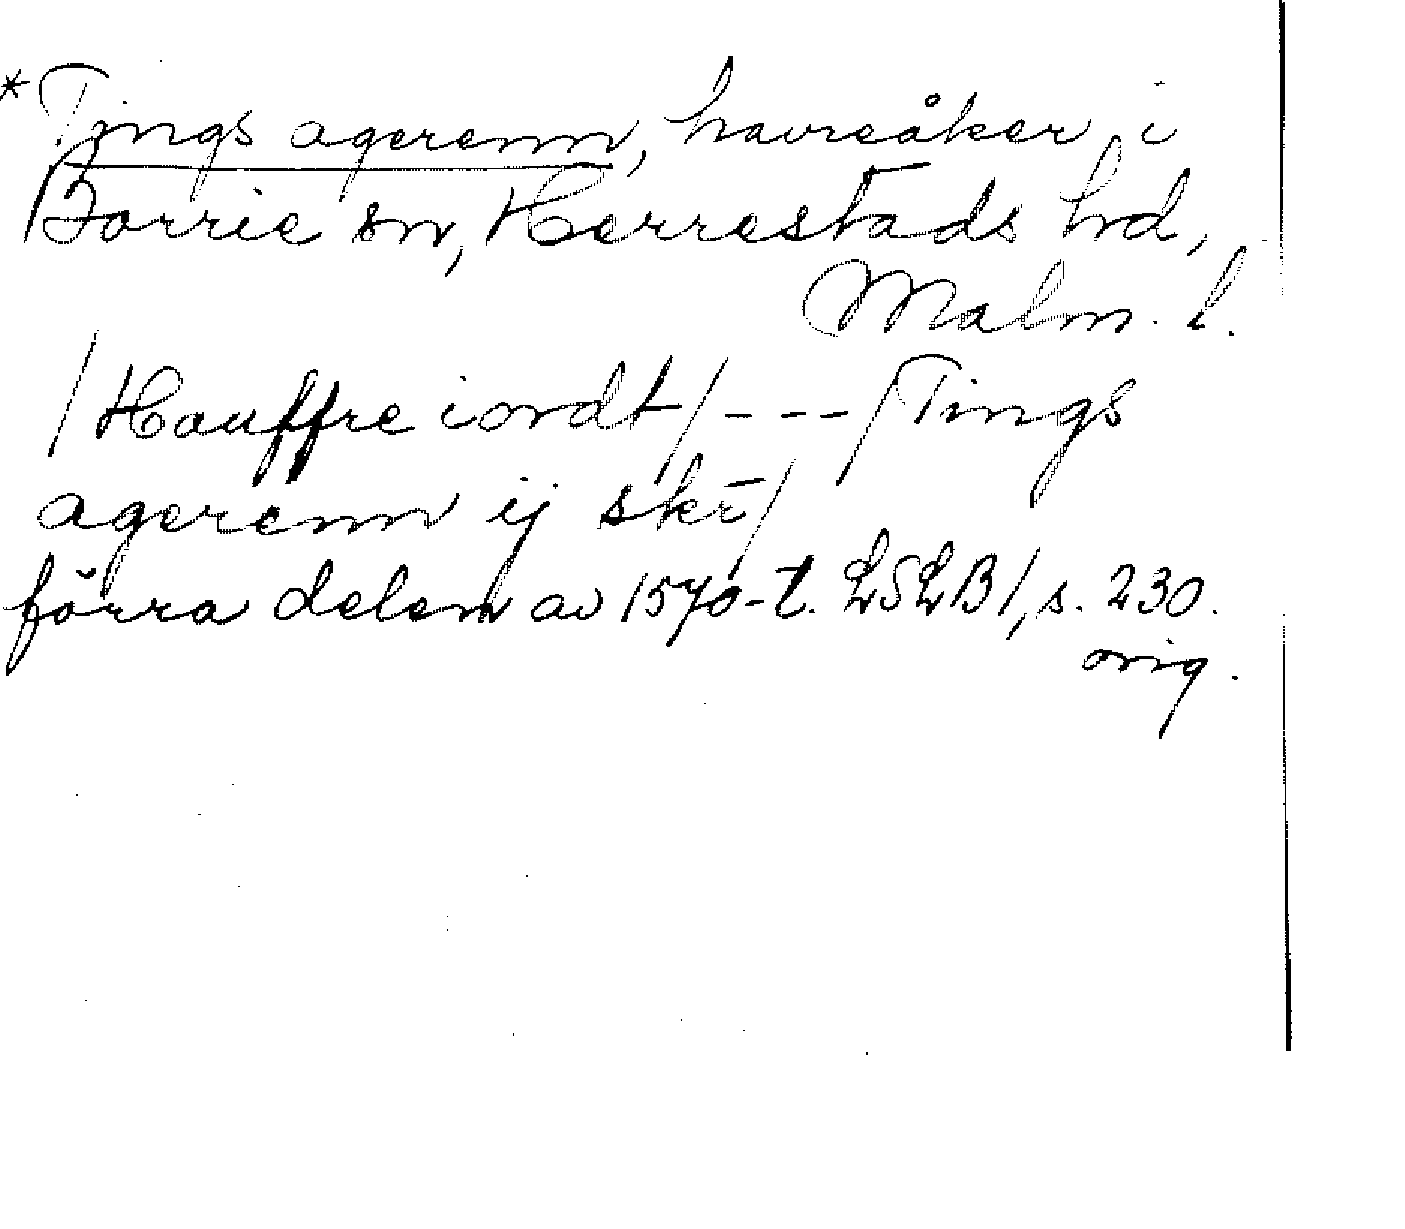 *Tings agerenn, havreåker i
Borrie sn, Herrestads hd,
Malm. l.
/Hauffre iordt/ - - - /Tings
agerenn ij skr̄/
förra delen av 1570-t. LSLB 1, s. 230.
orig.